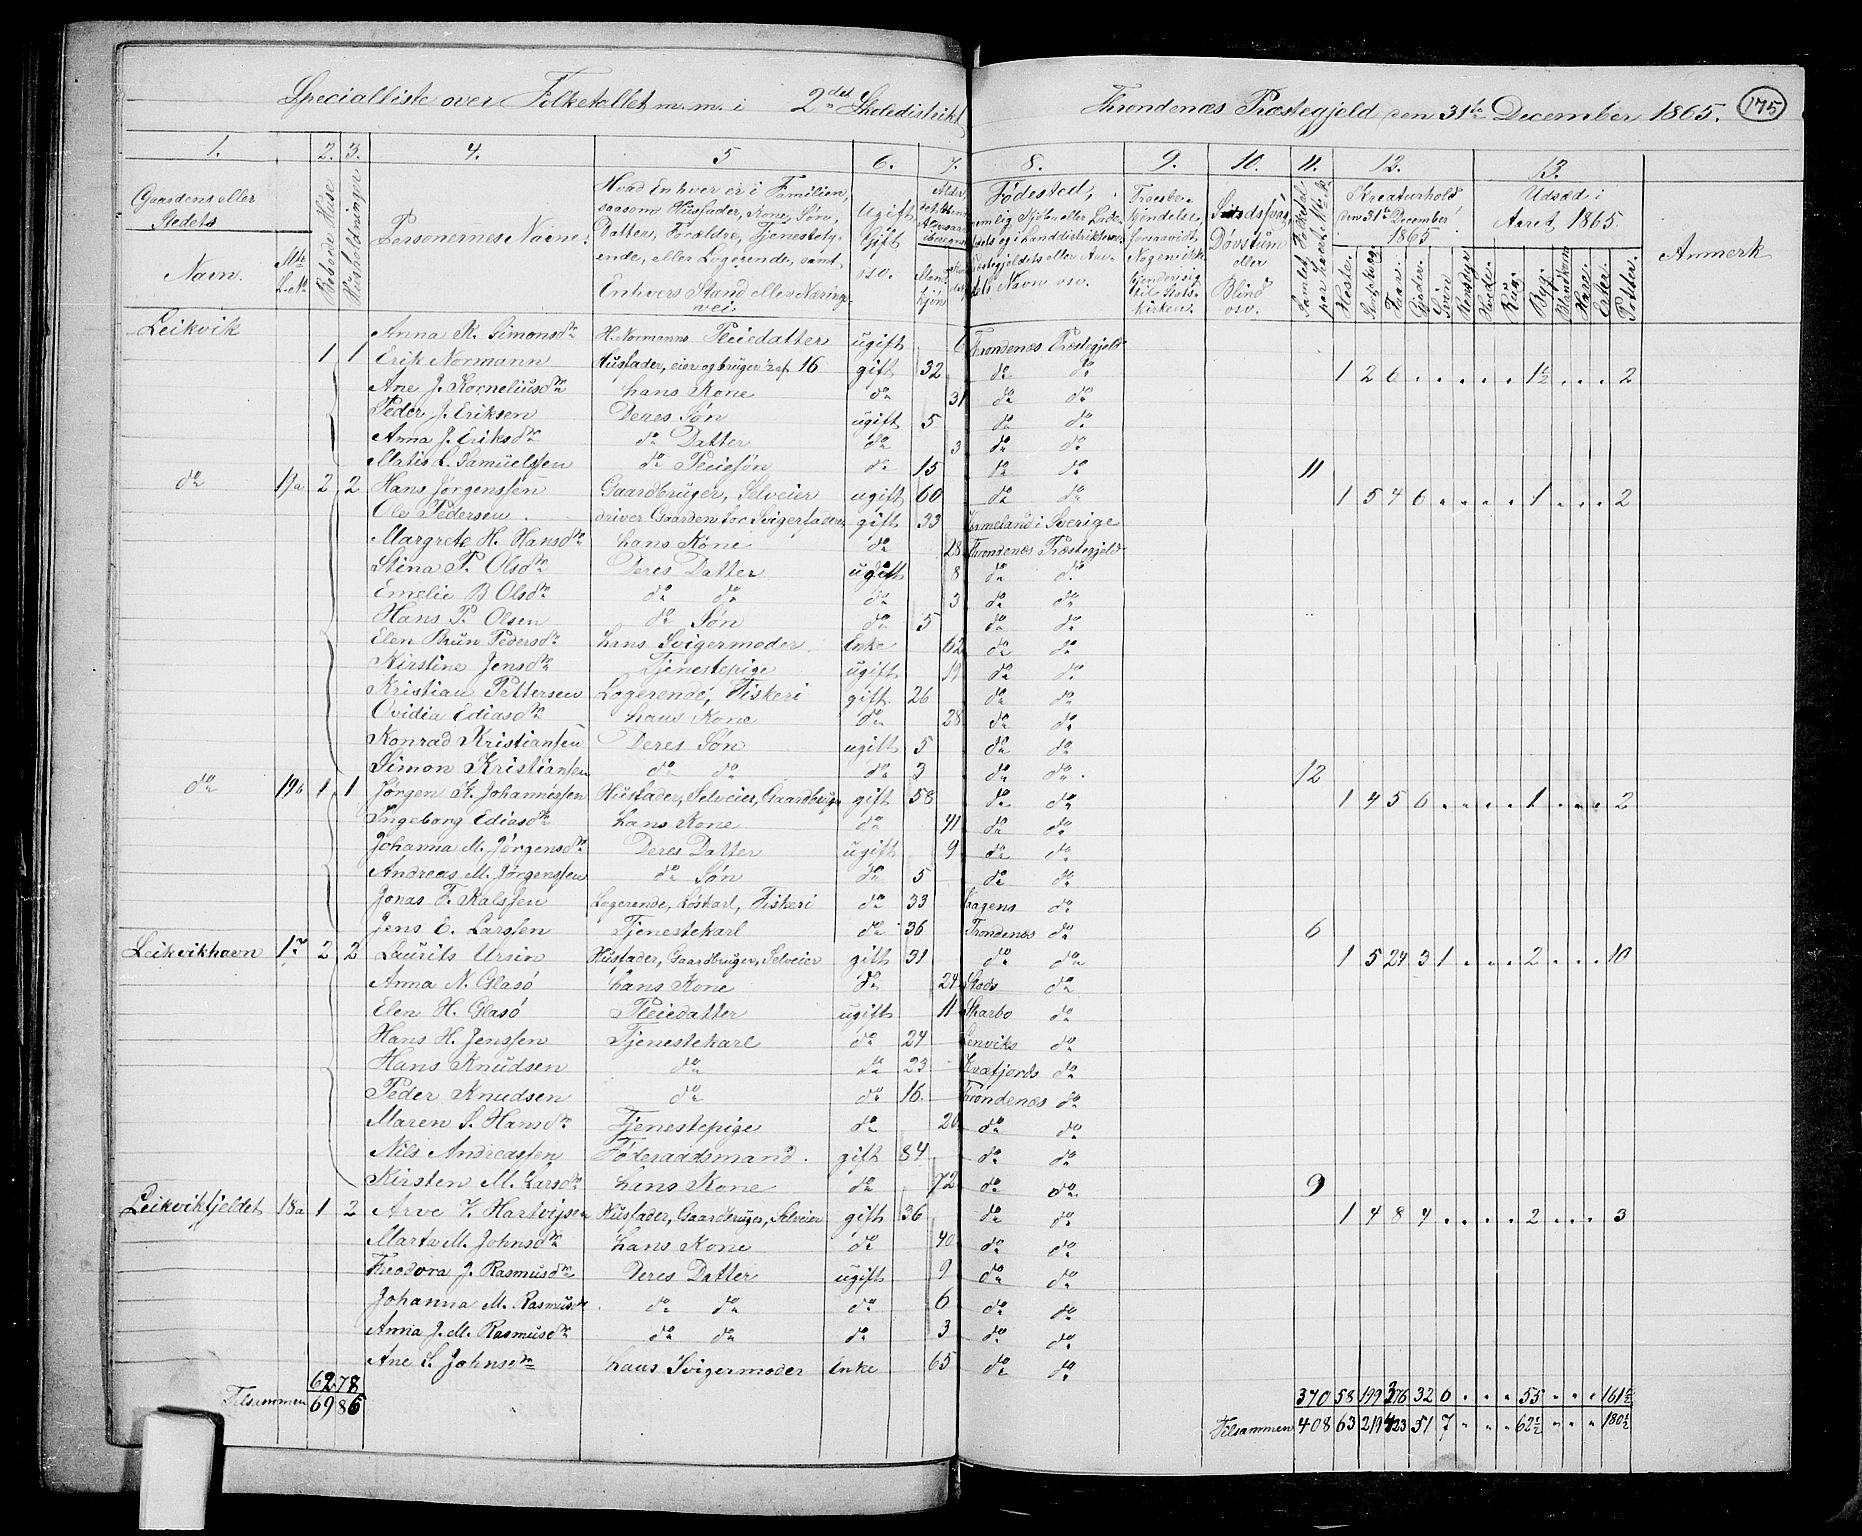 Specialliste over Folketallet m. m. i 2det Skoledistrikt Throndenæs Præstegjeld den 31te December 1865. 175
1. 2. 3. 4. 5 6. 7. 8. 9. 10. 11. 12. 13.
Gaardens eller Stedets Navn. Mtr. L.No Beboede Huse Husholdninger Personernes Navne.
Hvad Enhver er i Familien,
saasom Husfader, Kone, Søn,
Datter, Forældre, Tjenestety-
ende, eller Logerende, samt
Enhvers Stand eller Nærings-
vei.
Ugift Gift osv. Fødested,
Troesbe-
kjendelse,
forsaavidt
Nogen ikke
bekjender sig
til Stats-
kirken.
Sindssvag, Døvstum eller Blind osv.
Kreaturhold den 31te December 1865
Heste. Faar. Gjeder. Sviin Rensdyr
Udsæd i Aaret 1865.
Hvede. Rug. Byg. Blandkorn Havre. Erter. Poteter.
Anmerk
Leikvik Anna K. Simonsdtr H. Normanns Pleiedatter ugift 6 Trondenæs Præstegjeld
1 1 Erik Normann Husfader, eier og bruger 16 gift 32 do do 1 2 6 . . . . . 1½ . . . 2
Ane J. Korneliusdtr hans Kone do 31 do do
Peder J. Eriksen Deres Søn ugift 5 do do
Anna J. Eriksdtr do Datter do 3 do do
Matis L. Samuelssen do Pleiesøn do 15 do do 11
do 17a 2 2 Hans Jørgenssen Gaardbruger, Selveier ugift 60 do do 1 5 4 6 . . . . 1 . . . 2
Ole Pedersen driver Gaarden for Svigerfaderen gift 33 Vermeland i Sverige
Margrete H. Hansdtr hans Kone do 28 Trondenæs Præstegjeld
Stina P. Olsdtr Deres Datter ugift 8 do do
Emelie B Olsdtr do do do 3 do do
Hans P. Olsen do Søn do 5 do do
Elen Brun Pedersdtr hans Svigermoder Enke 62 do do
Kirstine Jensdtr Tjenestepige ugift 19 do do
Kristian Pettersen Logerende, Fiskeri gift. 26 do do
Ovidia Ediasdtr hans Kone do 28 do do
Konrad Kristiansen Deres Søn ugift 5 do do
Simon Kristiansen do do do 3 do do 12
do 19b 1 1 Jørgen K. Johannessen Husfader, Selveier, Gaardbruger gift 58 do do 1 4 5 6 . . . . 1 . . . 2
Ingeborg Ediasdtr hans Kone do 41 do do
Johanna M. Jørgensdtr Deres Datter ugift 9 do do
Andreas M. Jørgenssen do Søn do 5 do do
Jonas F. Kalssen Logerende, Løskarl, Fiskeri do 33 Hagens do
Jens E. Larssen Tjenestekarl do 36 Trondenæs do 6
Leikvikhavn 17 2 2 Laurits Ursin Husfader, Gaardbruger, Selveier gift 31 do do 1 5 24 3 1 . . . 2 . . . 10
Anna N. Glasø hans Kone do 24 Stods do
Elen H. Glasø Pleiedatter ugift 11 Skarbo do
Hans H. Jenssen Tjenestekarl do 24 Lenviks do
Hans Knudsen do do 23 Kvæfjords do
Peder Knudsen do do 16. Trondenæs do
Maren S. Hansdtr Tjenestepige do 20 do do
Nils Andreassen Føderaadsmand. gift 84 do do
Kirsten M. Larsdtr hans Kone do 72 do do 9
Leikvikfjeldet 18a 1 2 Arve Z Hartvigsen Husfader, Gaardbruger, Selveier gift 36 do do 1 4 8 4 . . . . 2 . . . 3
Marta M. Johnsdtr hans Kone do 40 do do
Theodora J. Rasmusdtr Deres Datter ugift 9 do do
Johanna M. Rasmusdtr do do do 6 do do
Anna J. M. Rasmusdtr do do do 3 do do
Ane S. Johnsdtr hans Svigermoder Enke 65 do do
62 78 370 58 199 376 32 6 . . . 55 . . . 161½
Tilsammen 69 86 Tilsammen 408 63 219 423 51 7 . . . 62½ . . . 180½